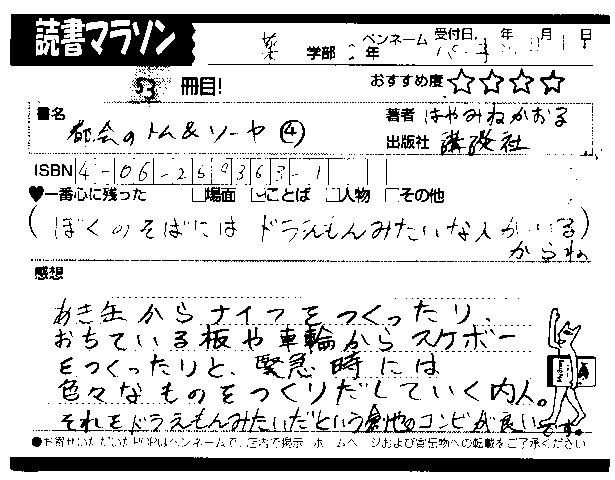 読書マラソン
薬 学部 年 ペンネーム 受付日: 年 月 日
53 冊目! おすすめ度 ☆☆☆☆
書名 著者 はやみねかおる
都会のトム&ソーヤ ④ 出版社 講談社
ISBN 4-06-269363-1
♥一番心に残った □場面 ☑ことば □人物 □その他
(ぼくのそばには ドラえもんみたいな人がいる
からね)
感想
あき缶からナイフをつくったり、
おちている板や車輪からスケボー
をつくったりと、緊急時には
色々なものをつくりだしていく内人。
それをドラえもんみたいだという創也のコンビが良いです。
●お寄せいただいたPOPはペンネームで、店内で掲示・ホームページおよび宣伝物への転載をご了承ください